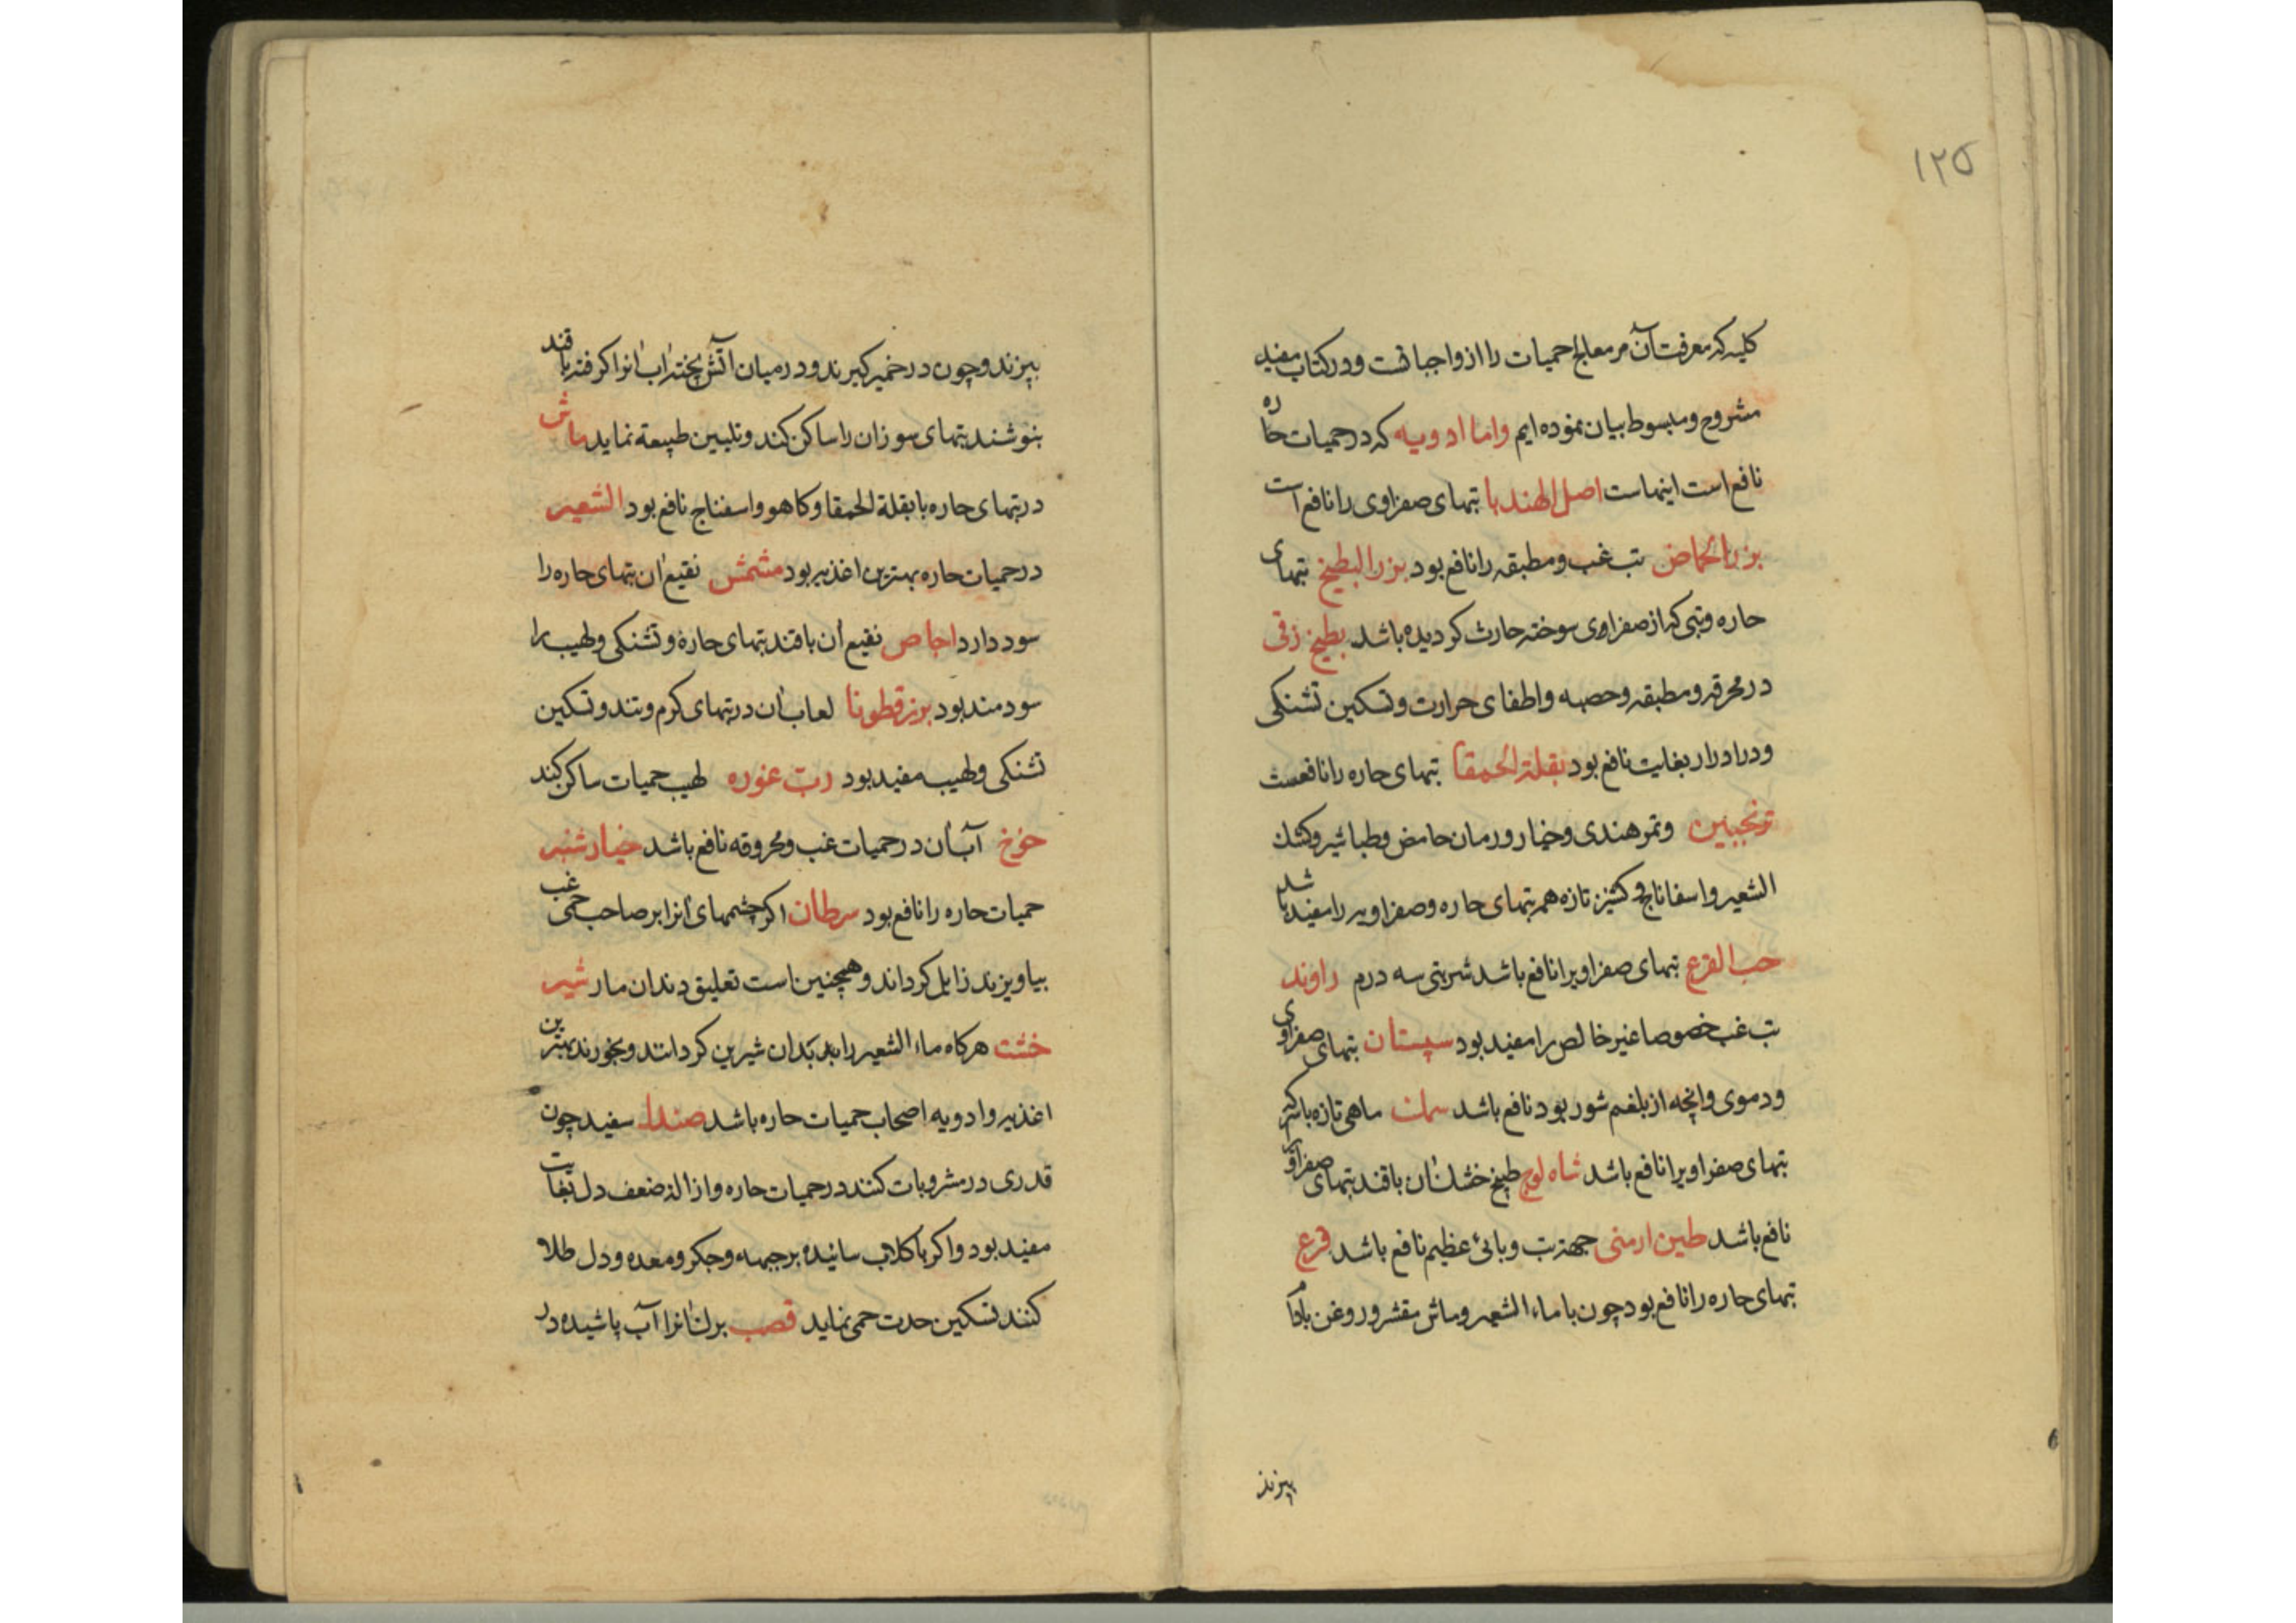 ۱۲۵
کلیه که معرفت آن مر معالج حمیات را از واجباتست و در کتاب مفید
مشروح و مبسوط بیان نموده ایم واما ادویه که در حمیات حاره
نافع است اینهاست اصل الهندبا تبهای صفراوی را نافع است
بزر الحماض تب غب و مطبقه را نافع بود بزر البطیخ تبهای
حاره و تبی که از صفرای سوخته حارث کردیده باشد بطیخ زقی
در محرقه و مطبقه و حصبه و اطفای حرارت و تسکین تشنکی
و در ادرار بغایت نافع بود بقلة الحمقا تبهای حاره را نافعست
ترنجبین و تمر هندی و خیار و رمان حامض و طباشیر و کشک
الشعیر و اسفاناج و کشنیز تازه هم تبهای حاره و صفراویه را مفید باشد
حب القرع تبهای صفراویرا نافع باشد شربتی سه درم راوند
تب غب خصوصا غیر خالص را مفید بود سپستان تبهای صفراوی
و دموی وانچه از بلغم شور بود نافع باشد سمک ماهی تازه با سرکه
تبهای صفراویرا نافع باشد شاه لوج طبیخ خشک آن با قند تبهای صفراوی
نافع باشد طین ارمنی جهة تب وبائی عظیم نافع باشد قرع
تبهای حاره را نافع بود چون با ماء الشعیر و ماش مقشر و روغن بادام
بپزند
بپزند و چون در خمیر کیرند و در میان آتش پخته آب آنرا کرفته با قند
بنوشند تبهای سوزان را ساکن کند و تلیین طبیعة نماید ماش
در تبهای حاره با بقلة الحمقا و کاهو و اسفناج نافع بود الشعیر
در حمیات حاره بهترین اغذیه بود مشمش نقیع آن تبهای حاره را
سود دارد اجاص نقیع آن با قند تبهای حاره و تشنکی و لهیب را
سودمند بود بزرقطونا لعاب آن در تبهای کرم و تند و تسکین
تشنکی و لهیب مفید بود رب غوره لهیب حمیات ساکن کند
خوخ آب آن در حمیات غب و محروقه نافع باشد خیارشنبر
حمیات حاره را نافع بود سرطان اکر چشمهای آنرا بر صاحب حمی غب
بیاویزند زایل کرداند و همچنین است تعلیق دندان مار شیر
خشت هرکاه ماء الشعیر را بدان شیرین کردانند و بخورند بهترین
اغذیه و ادویه اصحاب حمیات حاره باشد صندل سفید چون
قدری در مشروبات کنند در حمیات حاره و ازاله ضعف دل بغایت
مفید بود و اکر با کلاب سائیده بر جبهه و جکر و معده و دل طلا
کنند تسکین حدت حمی نماید قصب برک آنرا آب پاشیده در